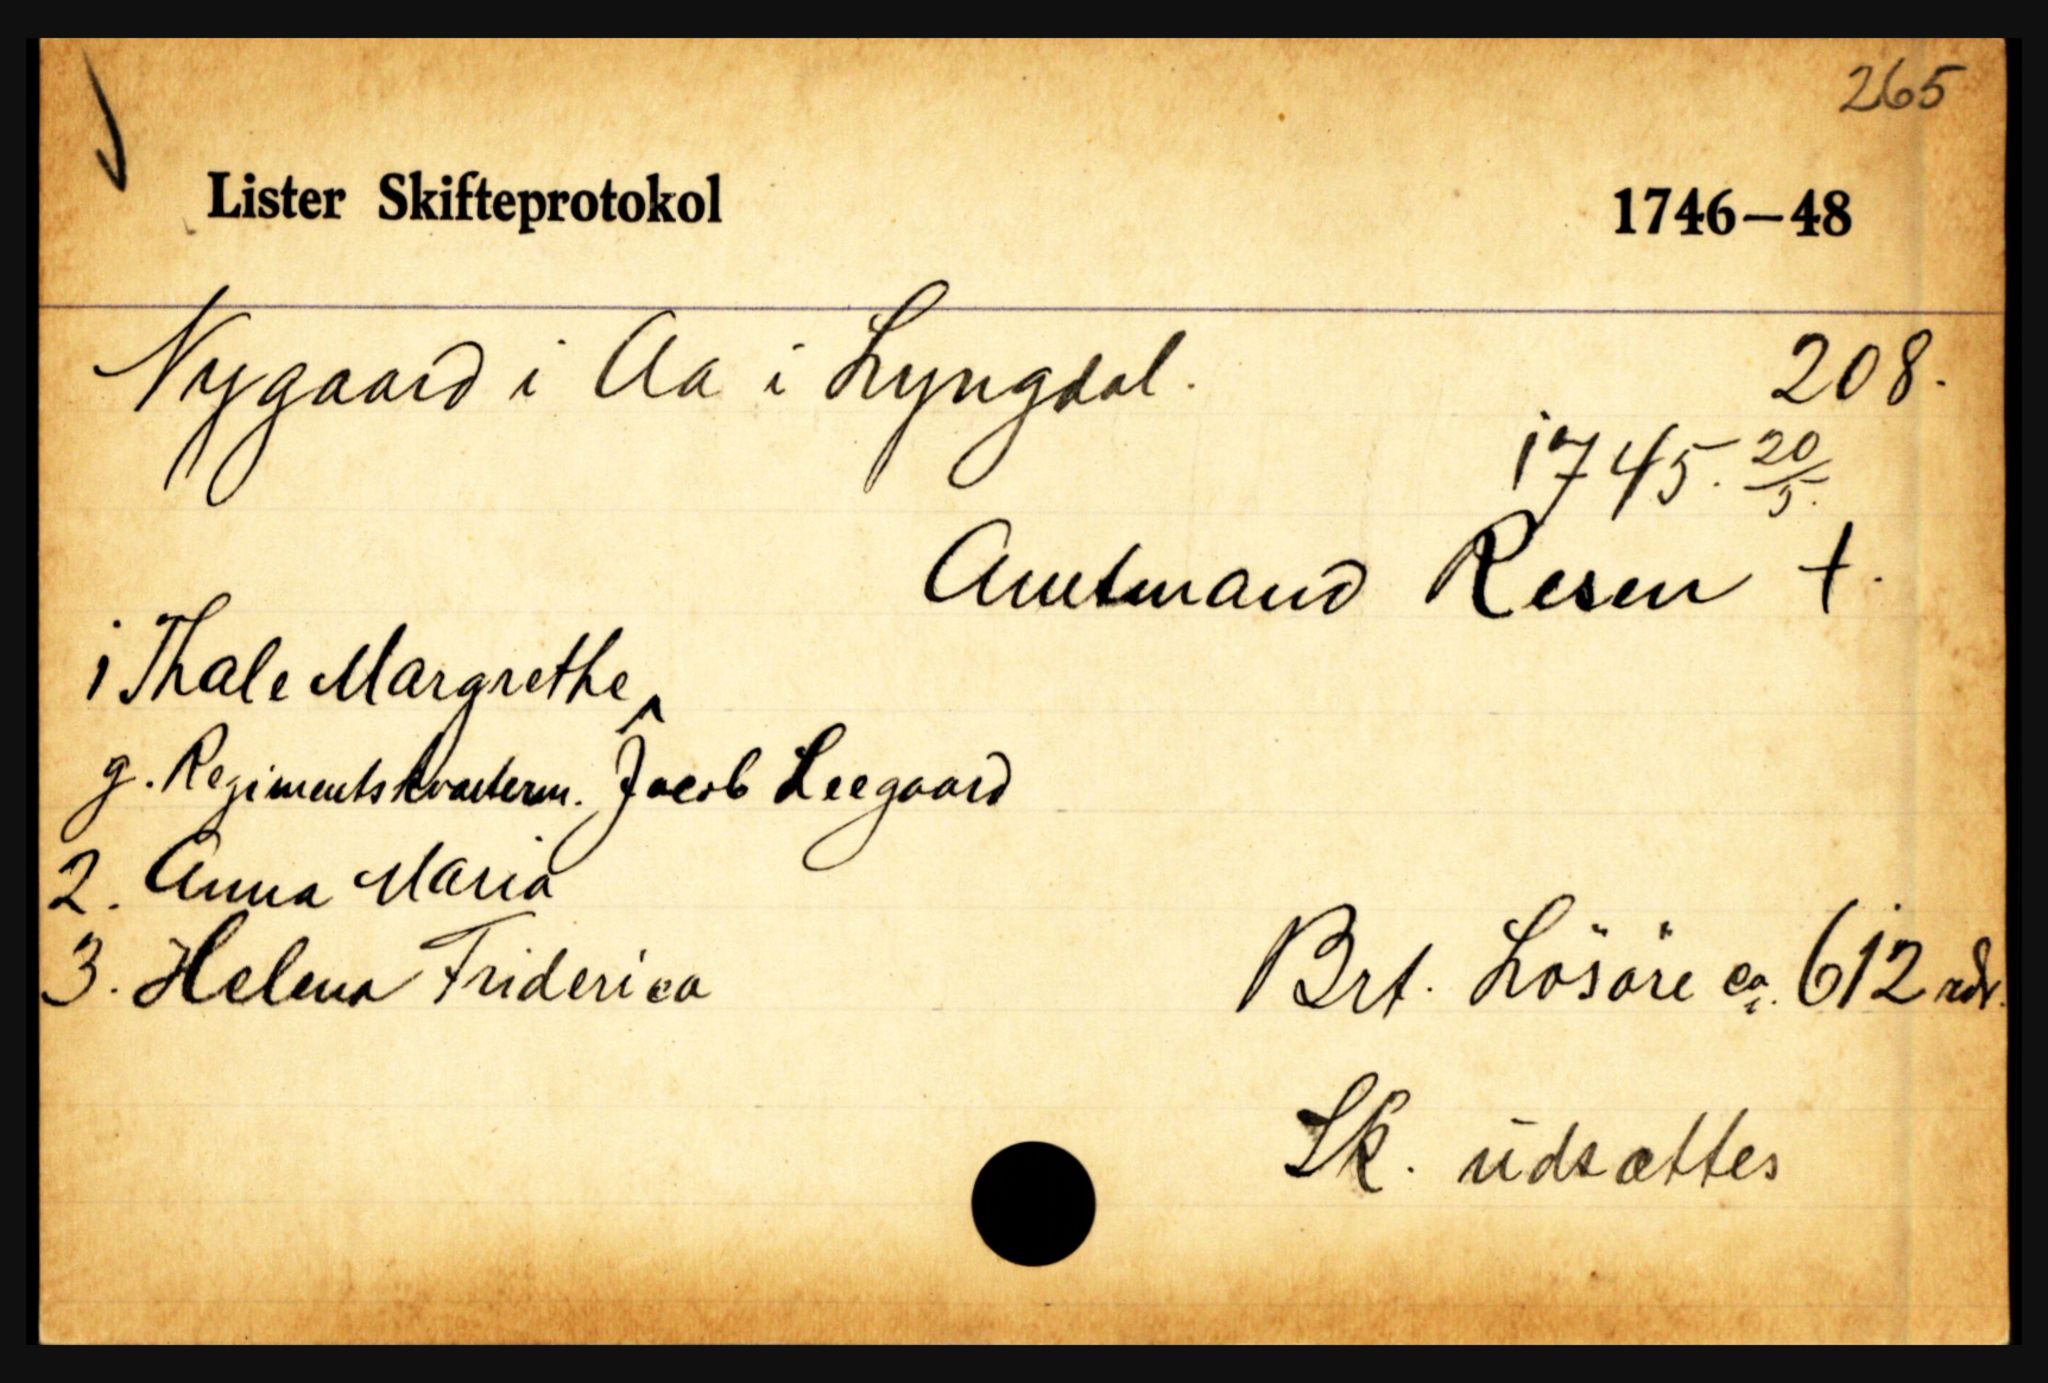 265
Lister Skifteprotokol 1746–48
Nygaard i Aa i Lyngdal. 208.
1745. 20/5.
Amtmand Resen †.
1 Thale Margrethe
g. Regimentskvarterm. Jacob Leegaard
2. Anna Maria
3. Helena Friderica
Brt. Lösöre ca. 612 rdr.
Sk. udsættes